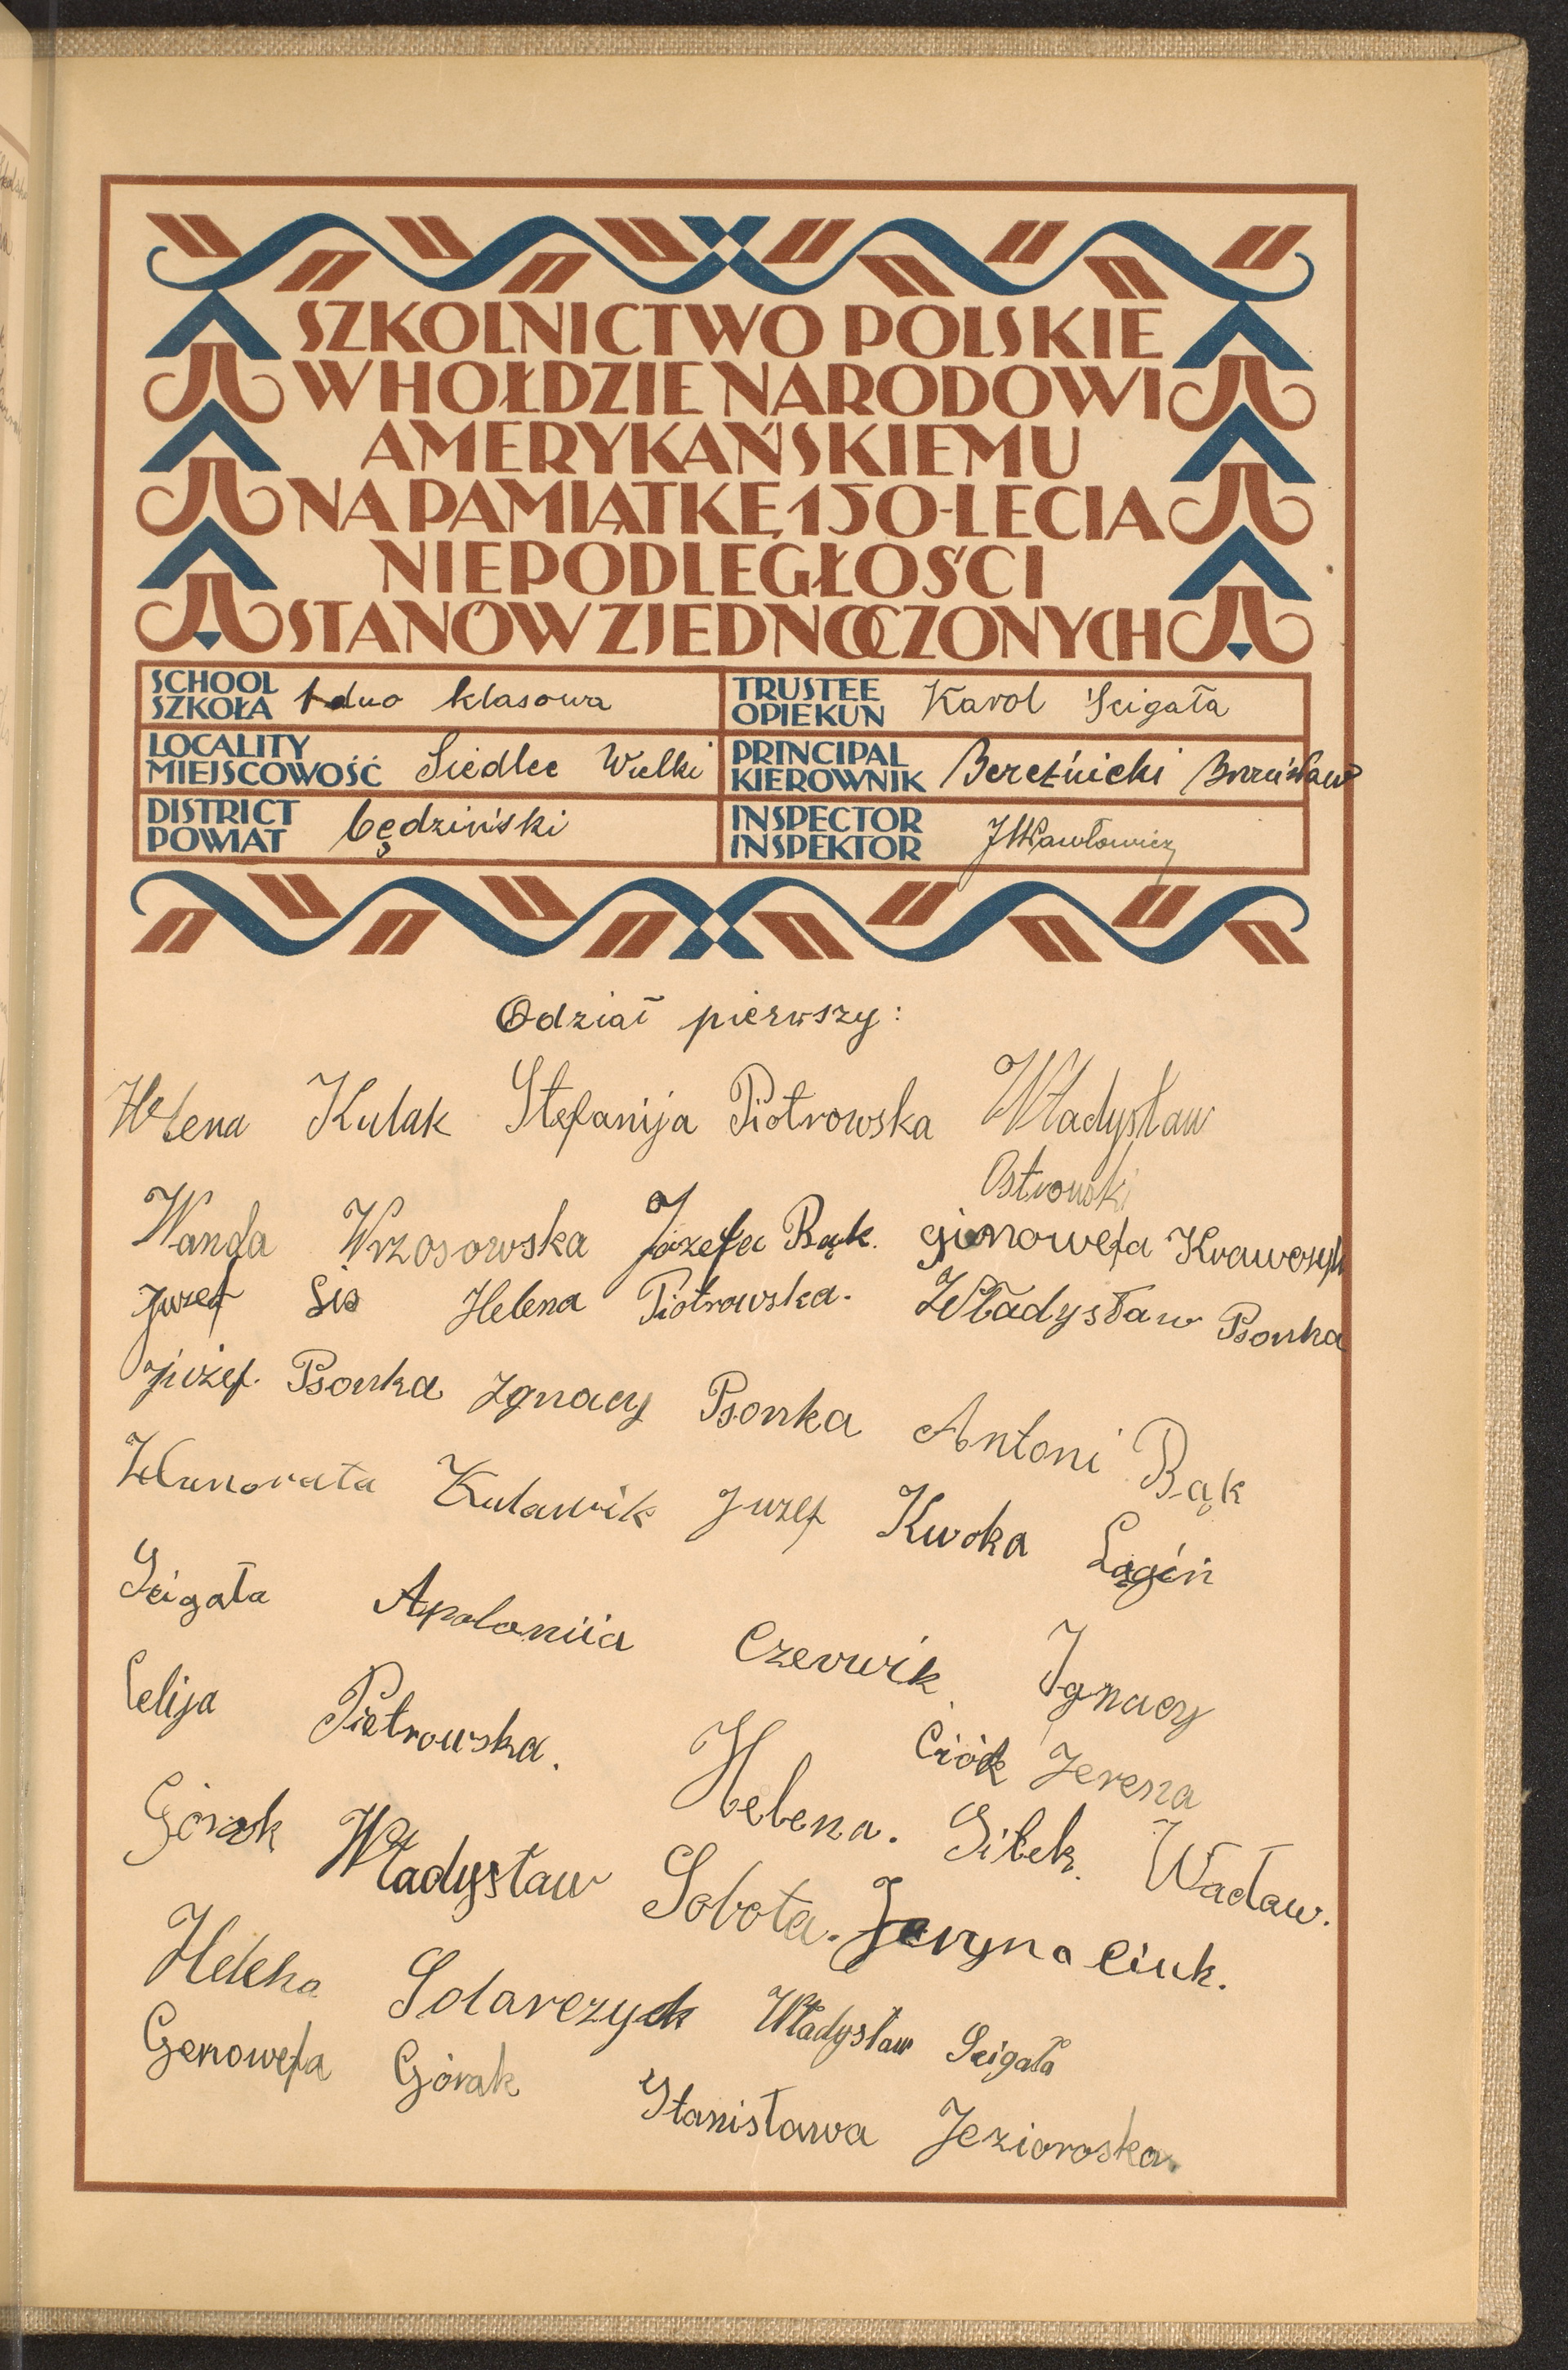 SZKOLNICTWO POLSKIE
W HOŁDZIE NARODOWI
AMERYKAŃSKIEMU
NA PAMIĄTKĘ 150-LECIA
NIEPODLEGŁOŚCI
STANÓW ZJEDNOCZONYCH
SCHOOL
SZKOŁA
duo klasowa
TRUSTEE
OPIEKUN
Karol Ścigała
LOCALITY
MIEJSCOWOŚĆ
Siedlec Wielki
PRINCIPAL
KIEROWNIK
Bereźnicki Bronisław
DISTRICT
POWIAT
będziński
INSPECTOR
INSPEKTOR
Odział pierwszy:
Helena Kulak Stefanija Piotrowska Władysław
Ostrowski
Wanda Wrzosowska Józefa Bąk. Ginowefa Krawczyk
Juzef Sis Helena Piotrowska. Władysław Psonka
Psonka Ignacy Psonka Antoni Bąk
Kulawik Juzef Kwoka
Scigała Apoloniia Czerwik Ignacy
Celija Pietrowska. Ciók Jerena
Górak Helena. Gitek. Wacław.
Władysław Sobota. Jeryna Ciuk.
Helena Solarczyk Władysław Scigała
Genowefa Górak Stanisława Jezioroska